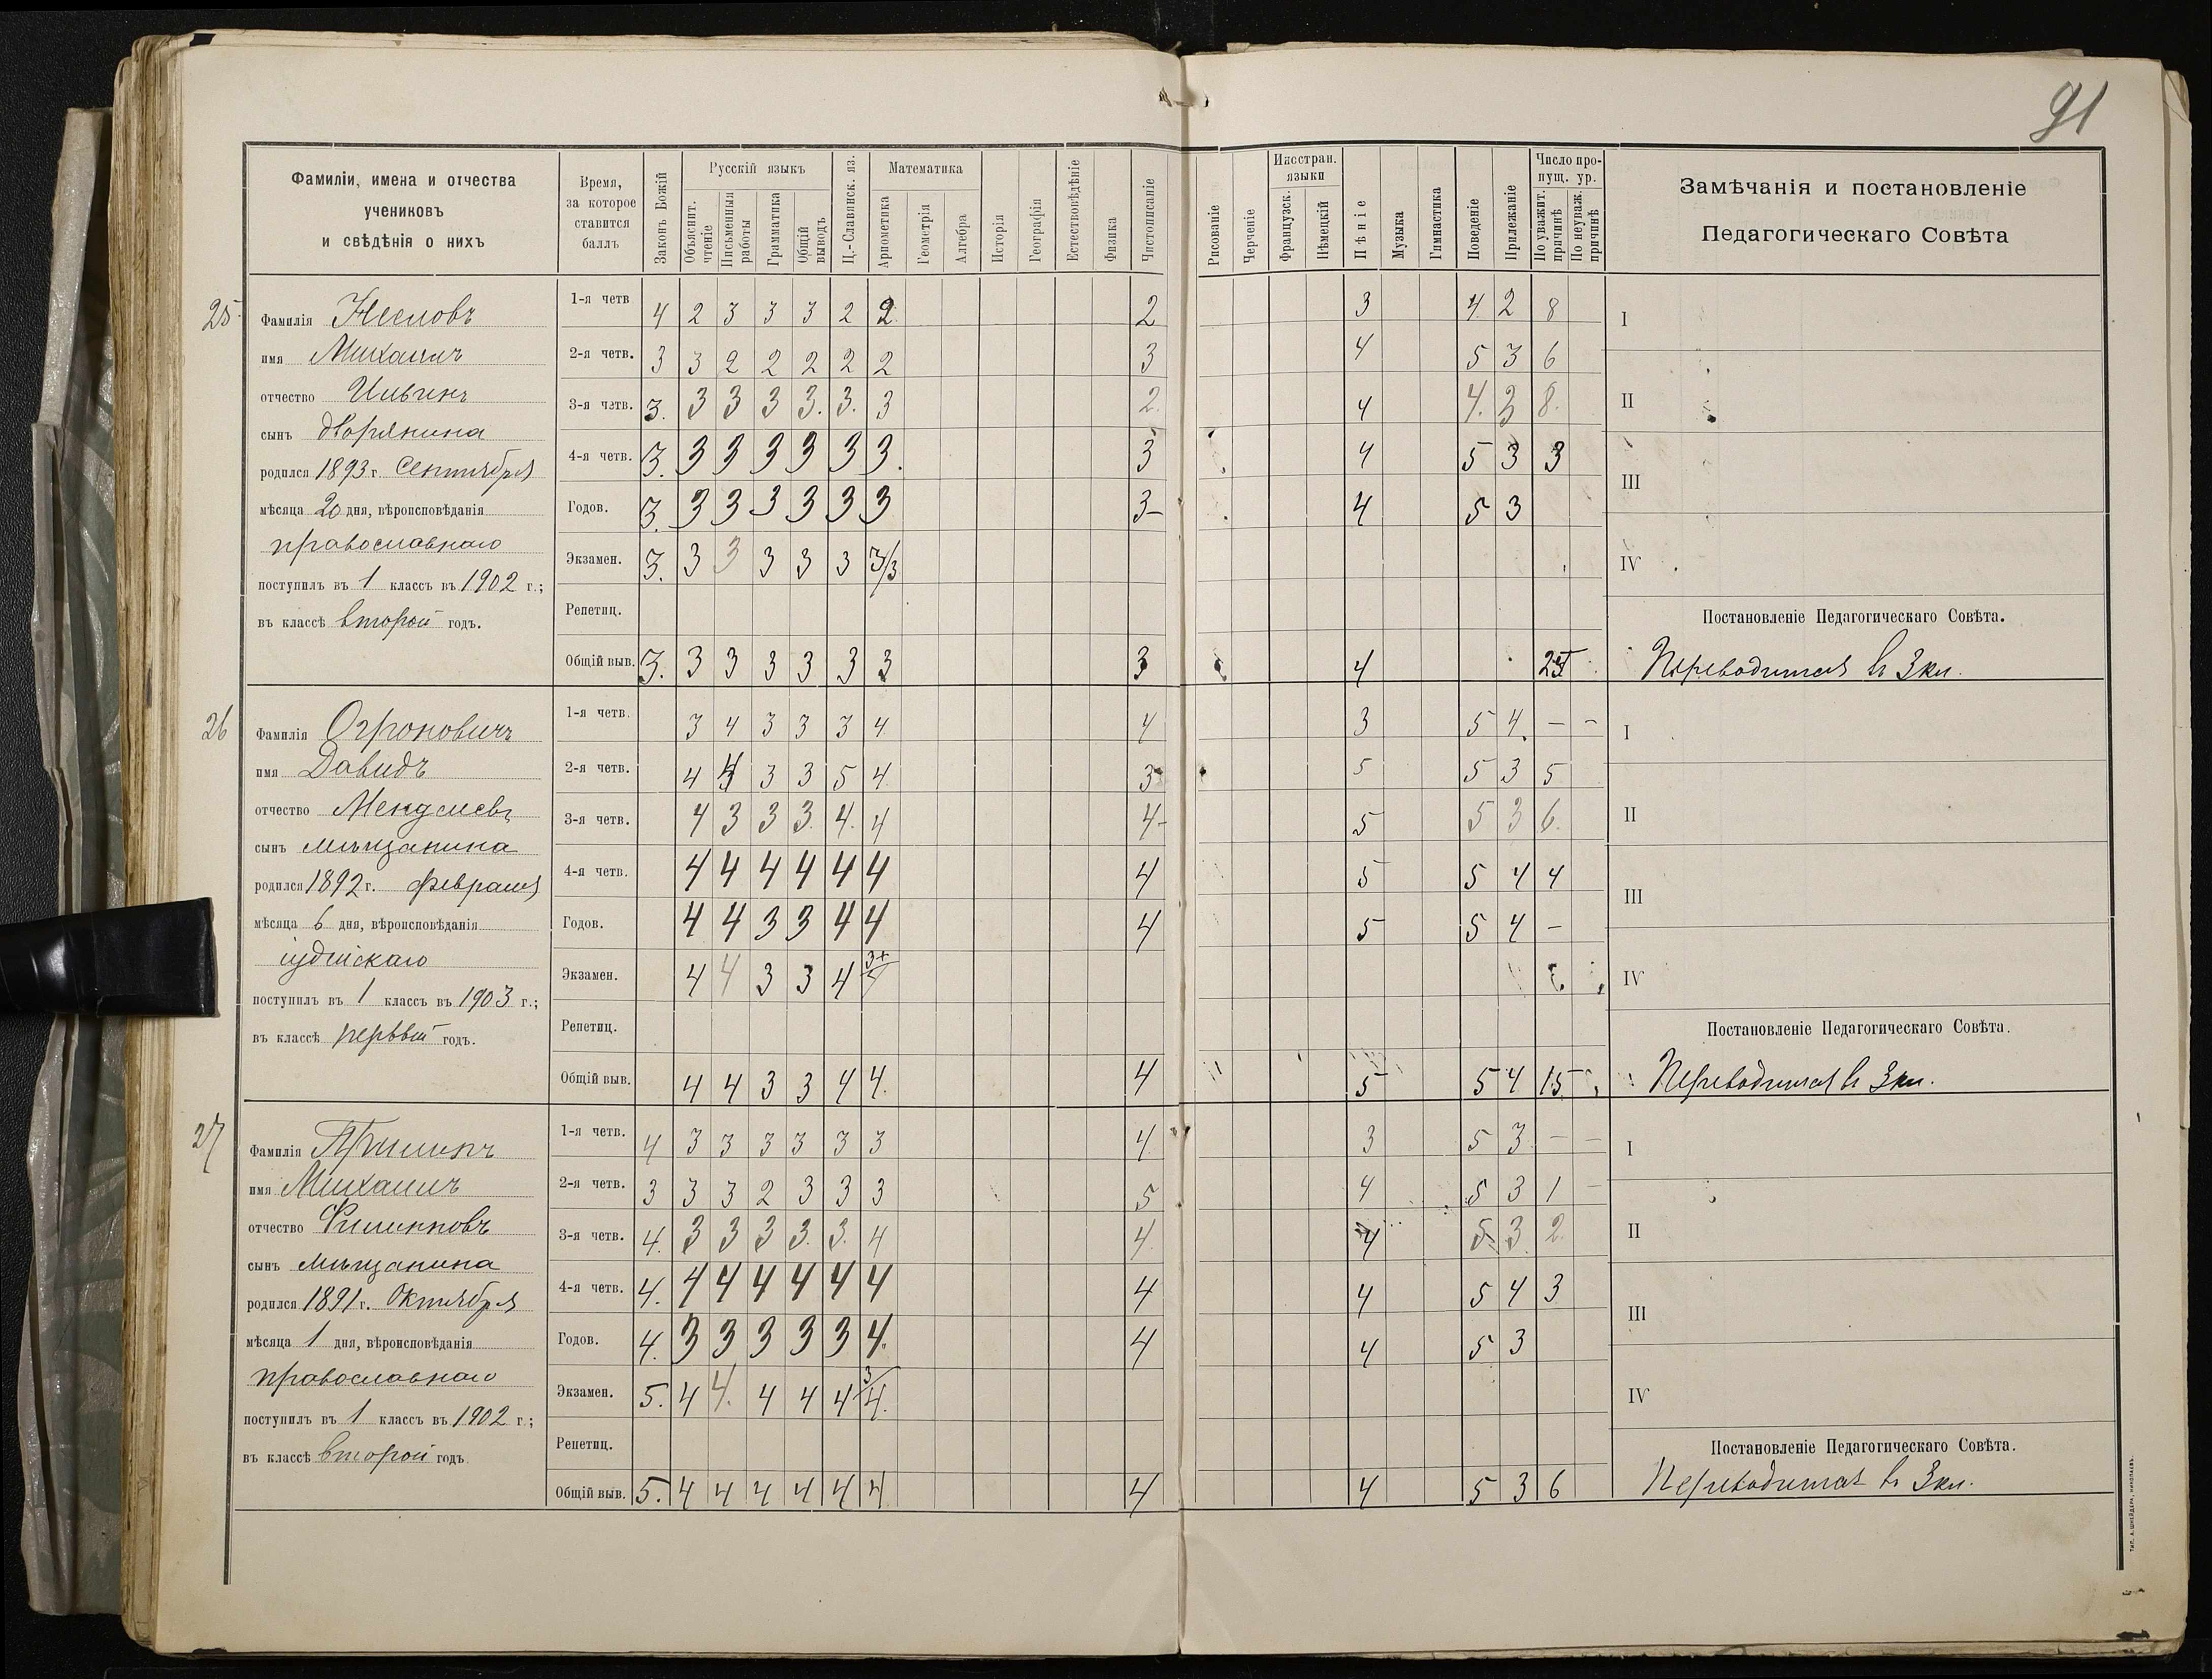 91
Фамиліи, имена и отчества
учениковъ
и свѣдѣнія о нихъ
Время,
за которое
ставится
баллъ
Законъ Божій
Русскій языкъ
Объяснит. чтеніе
Письменныя работы
Грамматика
Общій выводъ
Ц.-Славянск. яз.
Математика
Ариѳметика
Геометрія
Алгебра
Исторія
Географія
Естествовѣдѣніе
Физика
Чистописаніе
Рисованіе
Черченіе
Иностран. языки
Французск.
Нѣмецкій
Пѣніе
Музыка
Гимнастика
Поведеніе
Прилежаніе
Число пропущ. ур.
По уважит. причинѣ
По неуваж. причинѣ
Замѣчанія и постановленіе
Педагогическаго Совѣта
25
Фамилія
имя Михаилъ
отчество Ильинъ
сынъ дворянина
родился 1893 г. Сентября
мѣсяца 20 дня, вѣроисповѣданія
православнаго
поступилъ въ 1 классъ въ 1902 г.;
въ классѣ второй годъ.
1-я четв 4 2 3 3 3 2 2 2 3 4 2 8
2-я четв. 3 3 2 2 2 2 2 3 4 5 3 6
3-я четв. 3. 3 3 3 3. 3. 3 2. 4 4. 3 8.
4-я четв. 3. 3 3 3 3 3 3. 3 4 5 3 3
Годов. 3. 3 3 3 3 3 3 3- 4 5 3
Экзамен. 3. 3 3 3 3 3 3/3
Репетиц.
Общій выв. 3. 3 3 3 3 3 3 3 4
I
II
III
IV
Постановленіе Педагогическаго Совѣта.
Переводится въ 3 кл.
26
Фамилія Огроновичъ
имя Давидъ
отчество Менделевъ
сынъ мѣщанина
родился 1892 г. Февраля
мѣсяца 6 дня, вѣроисповѣданія
іудейскаго
поступилъ въ 1 классъ въ 1903 г.;
въ классѣ первый годъ.
1-я четв. 3 4 3 3 3 4 4 3 5 4. — –
2-я четв. 4 4 3 3 5 4 3 5 5 3 5
3-я четв. 4 3 3 3. 4. 4 4- 5 5 3 6.
4-я четв. 4 4 4 4 4 4 4 5 5 4 4
Годов. 4 4 3 3 4 4 4 5 5 4 –
Экзамен. 4 4 3 3 4 3+/4
Репетиц.
Общій выв. 4 4 3 3 4 4. 4 5 5 4 15
I
II
III
IV
Постановленіе Педагогическаго Совѣта.
Переводится въ 3 кл.
27
Фамилія
имя Михаилъ
отчество Филипповъ
сынъ мѣщанина
родился 1891 г. Октября
мѣсяца 1 дня, вѣроисповѣданія
православнаго
поступилъ въ 1 классъ въ 1902 г.;
въ классѣ второй годъ
1-я четв. 4 3 3 3 3 3 3 4 3 5 3 — —
2-я четв. 3 3 3 2 3 3 3 5 4 5 3 1 –
3-я четв. 4. 3 3 3 3. 3. 4 4. 4 5. 3. 2.
4-я четв. 4. 4 4 4 4 4 4 4 4 5 4 3
Годов. 4. 3 3 3 3 3 4. 4 4 5 3
Экзамен. 5. 4 4. 4 4 4 3/4.
Репетиц.
Общій выв. 5. 4 4 4 4 4 4 4 4 5 3 6
I
II
III
IV
Постановленіе Педагогическаго Совѣта.
Переводится въ 3 кл.
ТИП. А. ШНЕЙДЕРА, НИКОЛАЕВЪ.